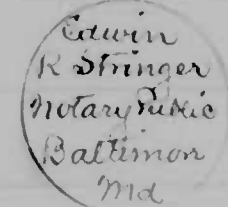 Edwin
K Stringer
Notary Public
Baltimore
Md